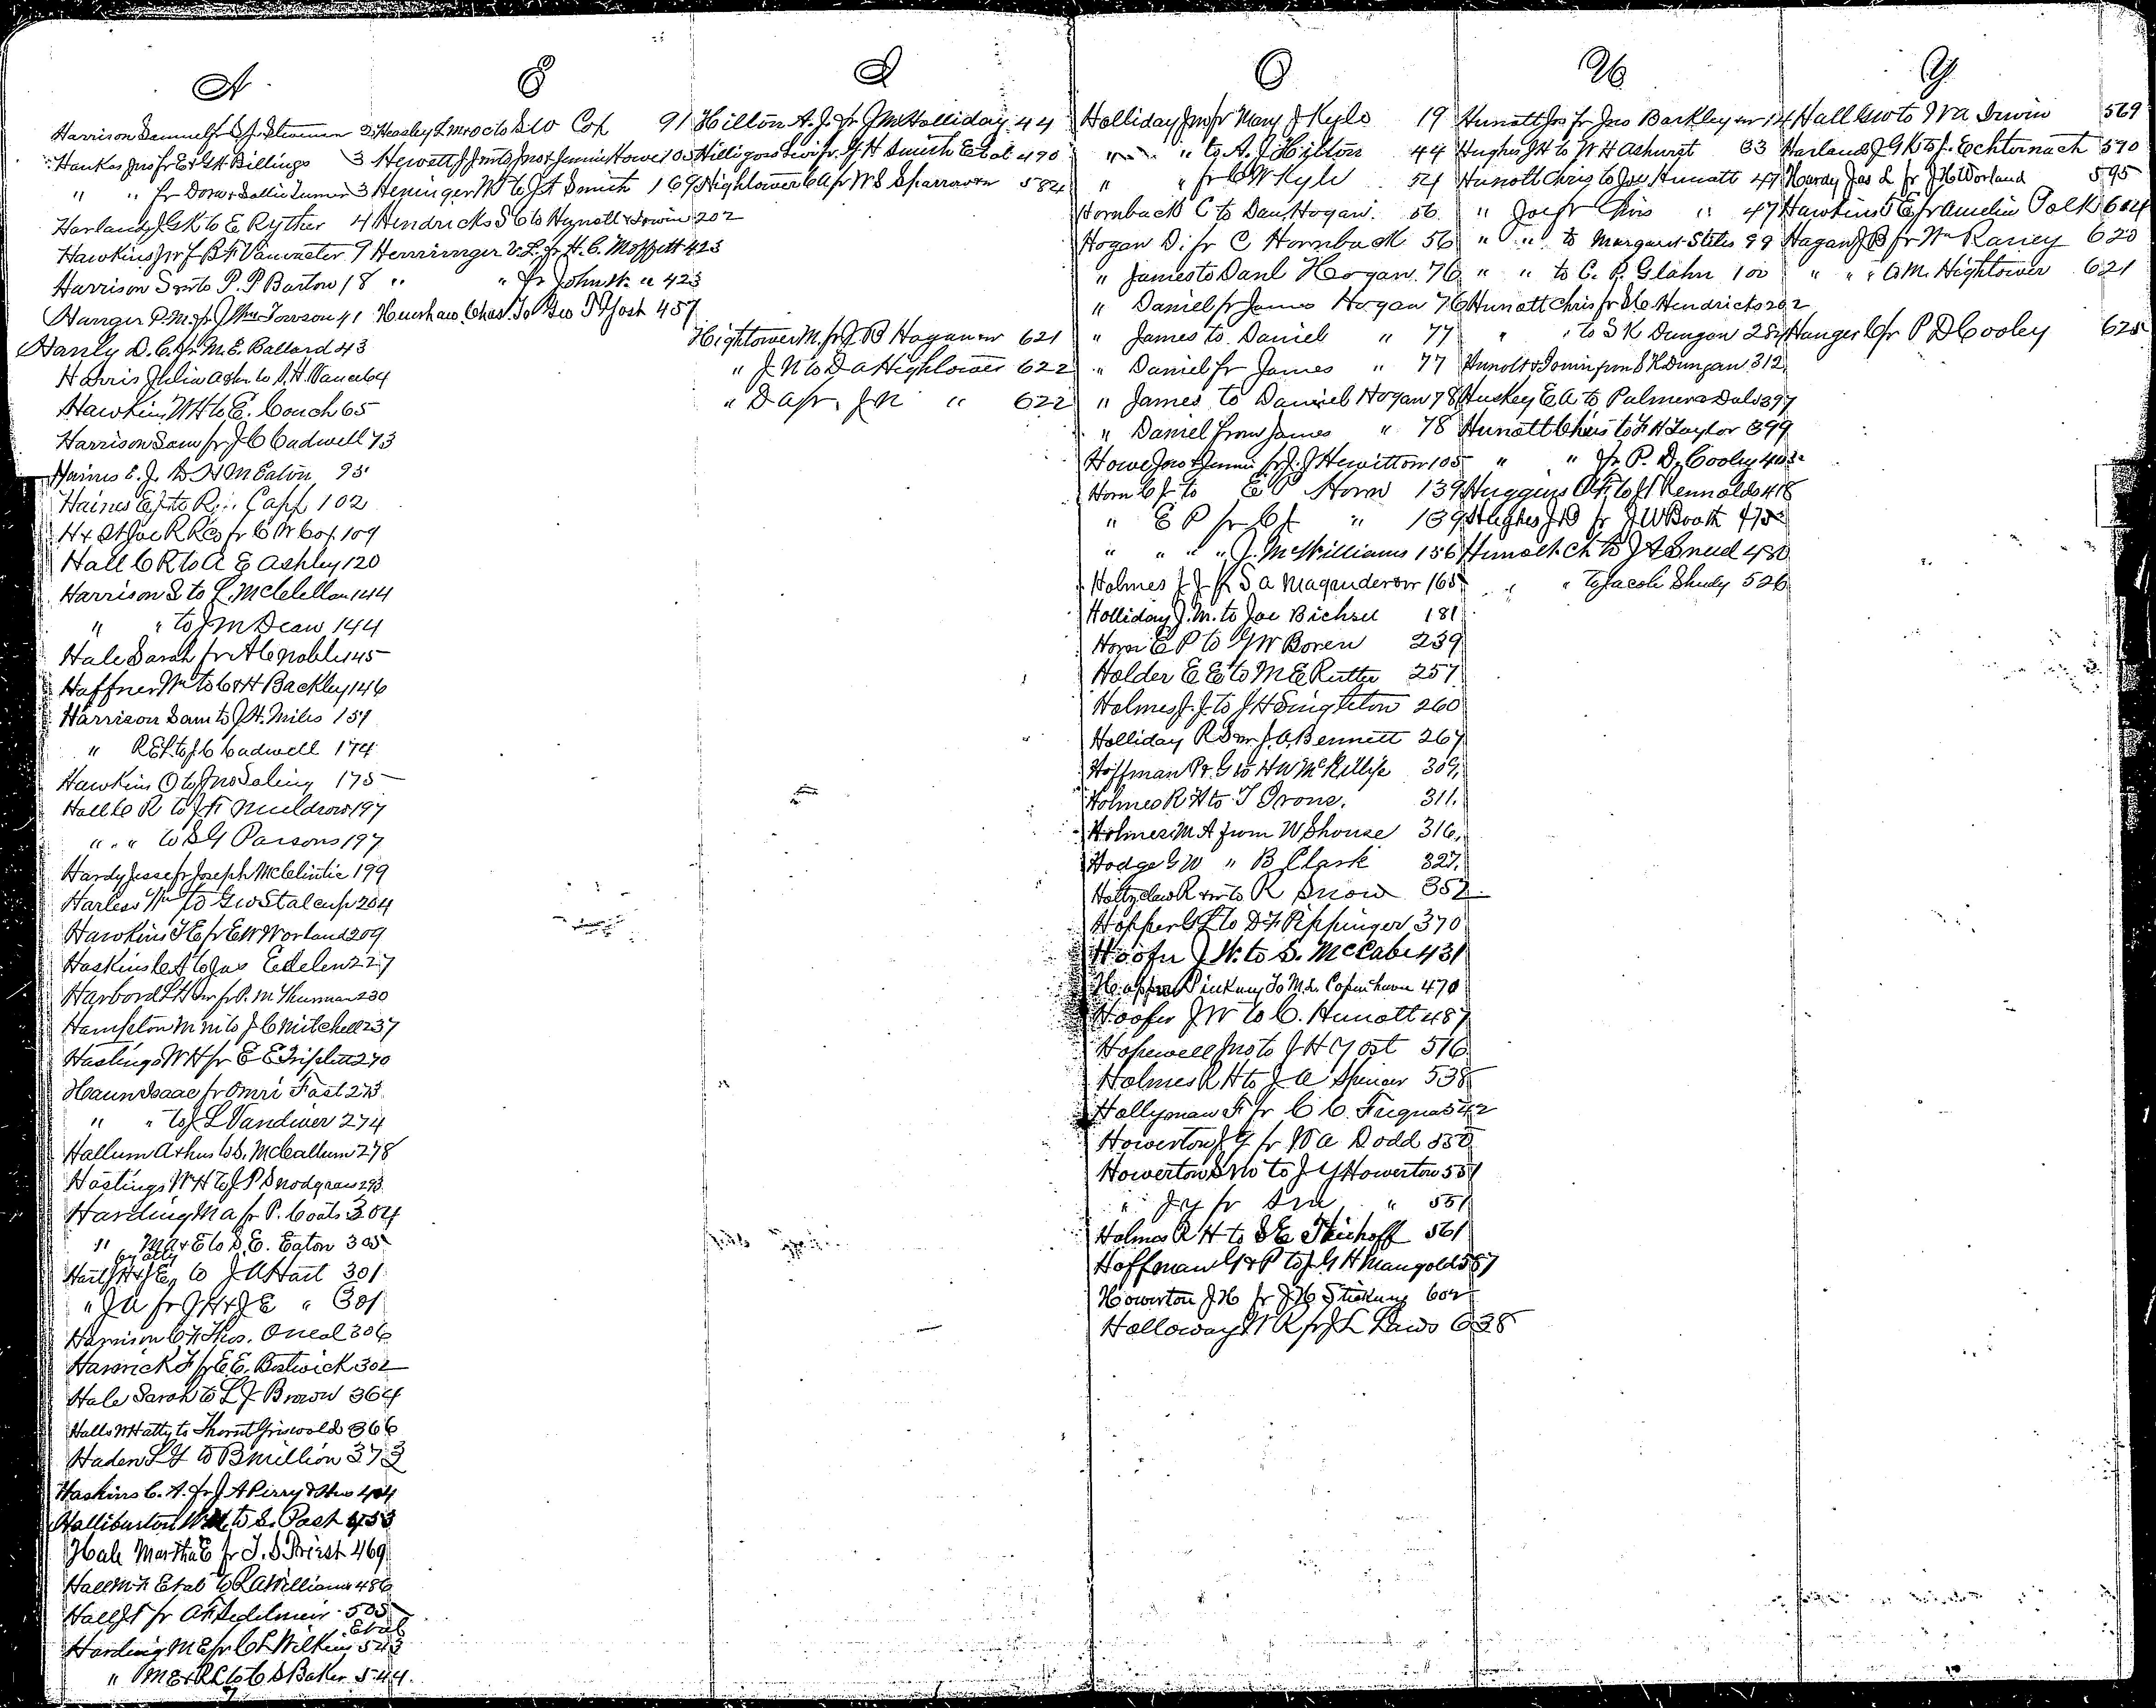 A
Harrison Samuel fr S J Stewman 2
Hankes Jno fr E & G H Billings 3
" " fr Dora & Sallie Turner 3
Harland J GK to E Ryther 4
Hawkins Jno f B F Vanwater 9
Harrison S to P. P Barton 18
Hanger P. M. fr J Towson 41
Hanly D. C. fr M. E. Ballard 43
Harris Julia a to S. H. Vance 64
Hawkins WH to E. Couch 65
Harrison Sam fr J C Cadwell 73
Haines E. J. to H M Eaton 95
Haines E J to R. Capp 102
H & St Joe R R Co fr C W Cox 109
Hall C R to A E Ashley 120
Harrison S to L. McClellan 144
" " to J M Dean 144
Hale Sarah fr A C Noble 145
Haffner Wm to C & H Backley 146
Harrison Sam to J. H. Miles 151
" R E L to J C Cadwell 174
Hawkins O to Jno Saling 175
Hall C R to J H Muldrow 197
" " to S G Parsons 197
Hardy Jesse fr Joseph McClintic 199
Harless Wm to Geo Stalcup 204
Hawkins T E fr E W Worland 209
Haskins C A to Jas Edelen 227
Harbord L H fr P. M Thurman 230
Hampton M M to J C Mitchell 237
Hastings W H fr E E Triplett 270
Haun Isaac fr Omri Fast 273
" " to J L Vandiver 274
Hallum Arthur to S. McCallum 278
Hastings W H to J P Snodgrass 293
Harding M A fr P. Coats 304
" M A & E to S. E. Eaton 305
by atty
Hart J H & J E to J A Hart 301
" J A fr J H & J E " 301
Harrison C fr Thos. Oneal 306
Hannick F fr E E. Bostwick 302
Hale Sarah to L J Brown 364
Halls M Hatty to Thornt Griswold 366
Haden L F to B Million 373
Haskins C. A. fr J A Perry & Hus 404
Halliburton to S. Post 453
Hale Martha E fr J. S Priest 469
Hall M A Etal to R A Williams 486
Hall J T fr A H Sidelmeir 505
Etal
Harding M E fr C L Wilkins 543
" M E & R L to C S Baker 544
E
Heasley L M to S W Cox 91
Hewitt J J to Jno & Jennie Howe 105
Heninger W to J A Smith 169
Hendricks S C to Hunolt & Irwin 202
Henninger V. L. fr H. C. Moffett 423
" " fr John W. " 423
Henshaw Chas. To Geo T Yost 457
I
Hilton A. J. fr J M Holliday 44
Hilligoss Levi fr J H Smith Etal 490
Hightower C A fr W S Sparrow 584
Hightower M. fr J B Hagan 621
" J. N to D A Hightower 622
" D A fr J N " 622
O
Holliday Jno fr Mary J Kyle 19
" " to A. J Hilton 44
" " fr C W Kyle 54
Hornback C to Dan. Hogan 56
Hogan D. fr C Hornback 56
" James to Danl Hogan 76
" Daniel fr James Hogan 76
" James to Daniel " 77
" Daniel fr James " 77
" James to Daniel Hogan 78
" Daniel from James " 78
Howe Jno & Jennie fr J. J Hewitt 105
Horn C J to E P Horn 139
" E P fr C J " 139
" " " J. McWilliams 156
Holmes J J fr S A Magruder 165
Holliday J. M. to Joe Bichsel 181
Horn E P to G W Boren 239
Holder E E to M E Rutter 257
Holmes J. J. to J H Singleton 260
Holliday R S J. A. Bennett 267
Hoffman P. G to H W McKillip 309
Holmes R H to T Irons. 311
Holmes M A from W Shouse 316
Hodge G W " B Clark 327
Holtzclaw R to R Snow 352
Hopper G L to D F Pippinger 370
Hoofer J W. to S. McCabe 431
Hopper Pinkney To M. L. Copenhaver 470
Hoofer J W to C. Hunott 487
Hopewell Jno to J H Yost 516
Holmes R H to J A Spencer 538
Hollyman F fr C C. Fuqua 542
Howerton J Y fr W A Dodd 550
Howerton S M to J Y Howerton 551
" J Y fr S M " 551
Holmes R H to S E Thiehoff 561
Hoffman G & P to J G H Mangold 567
Howerton J H fr J H Stickney 602
Holloway W R fr J L Laws 638
U
Hunott Jos fr Jno Barkley 14
Hughes J H to W H Ashurst 33
Hunott Chris to Joe Hunatt 47
" Joe fr Chris " 47
" " to Margaret Stiles 99
" " to C. P. Glahn 100
Hunott Chris fr S C Hendricks 202
" " to S K Dungan 284
Hunolt & Irwin from S K Dungan 312
Huskey E A to Palmer 397
Hunott Chris to F H Taylor 399
" " fr P. D. Cooley 403
Huggins O F. to J T Rennolds 418
Hughes J D fr J W Booth 475
Hunolt Ch to J A Snud 480
" " to Jacob Shudy 526
Y
Hall Geo to Ira Irwin 569
Harland J G K to J. Echternach 570
Hardy Jas L fr J H Worland 595
Hawkins T E fr Amelia Polk 604
Hagan J B fr Wm Raney 620
" " " A M. Hightower 621
Hanger C fr P D Cooley 625